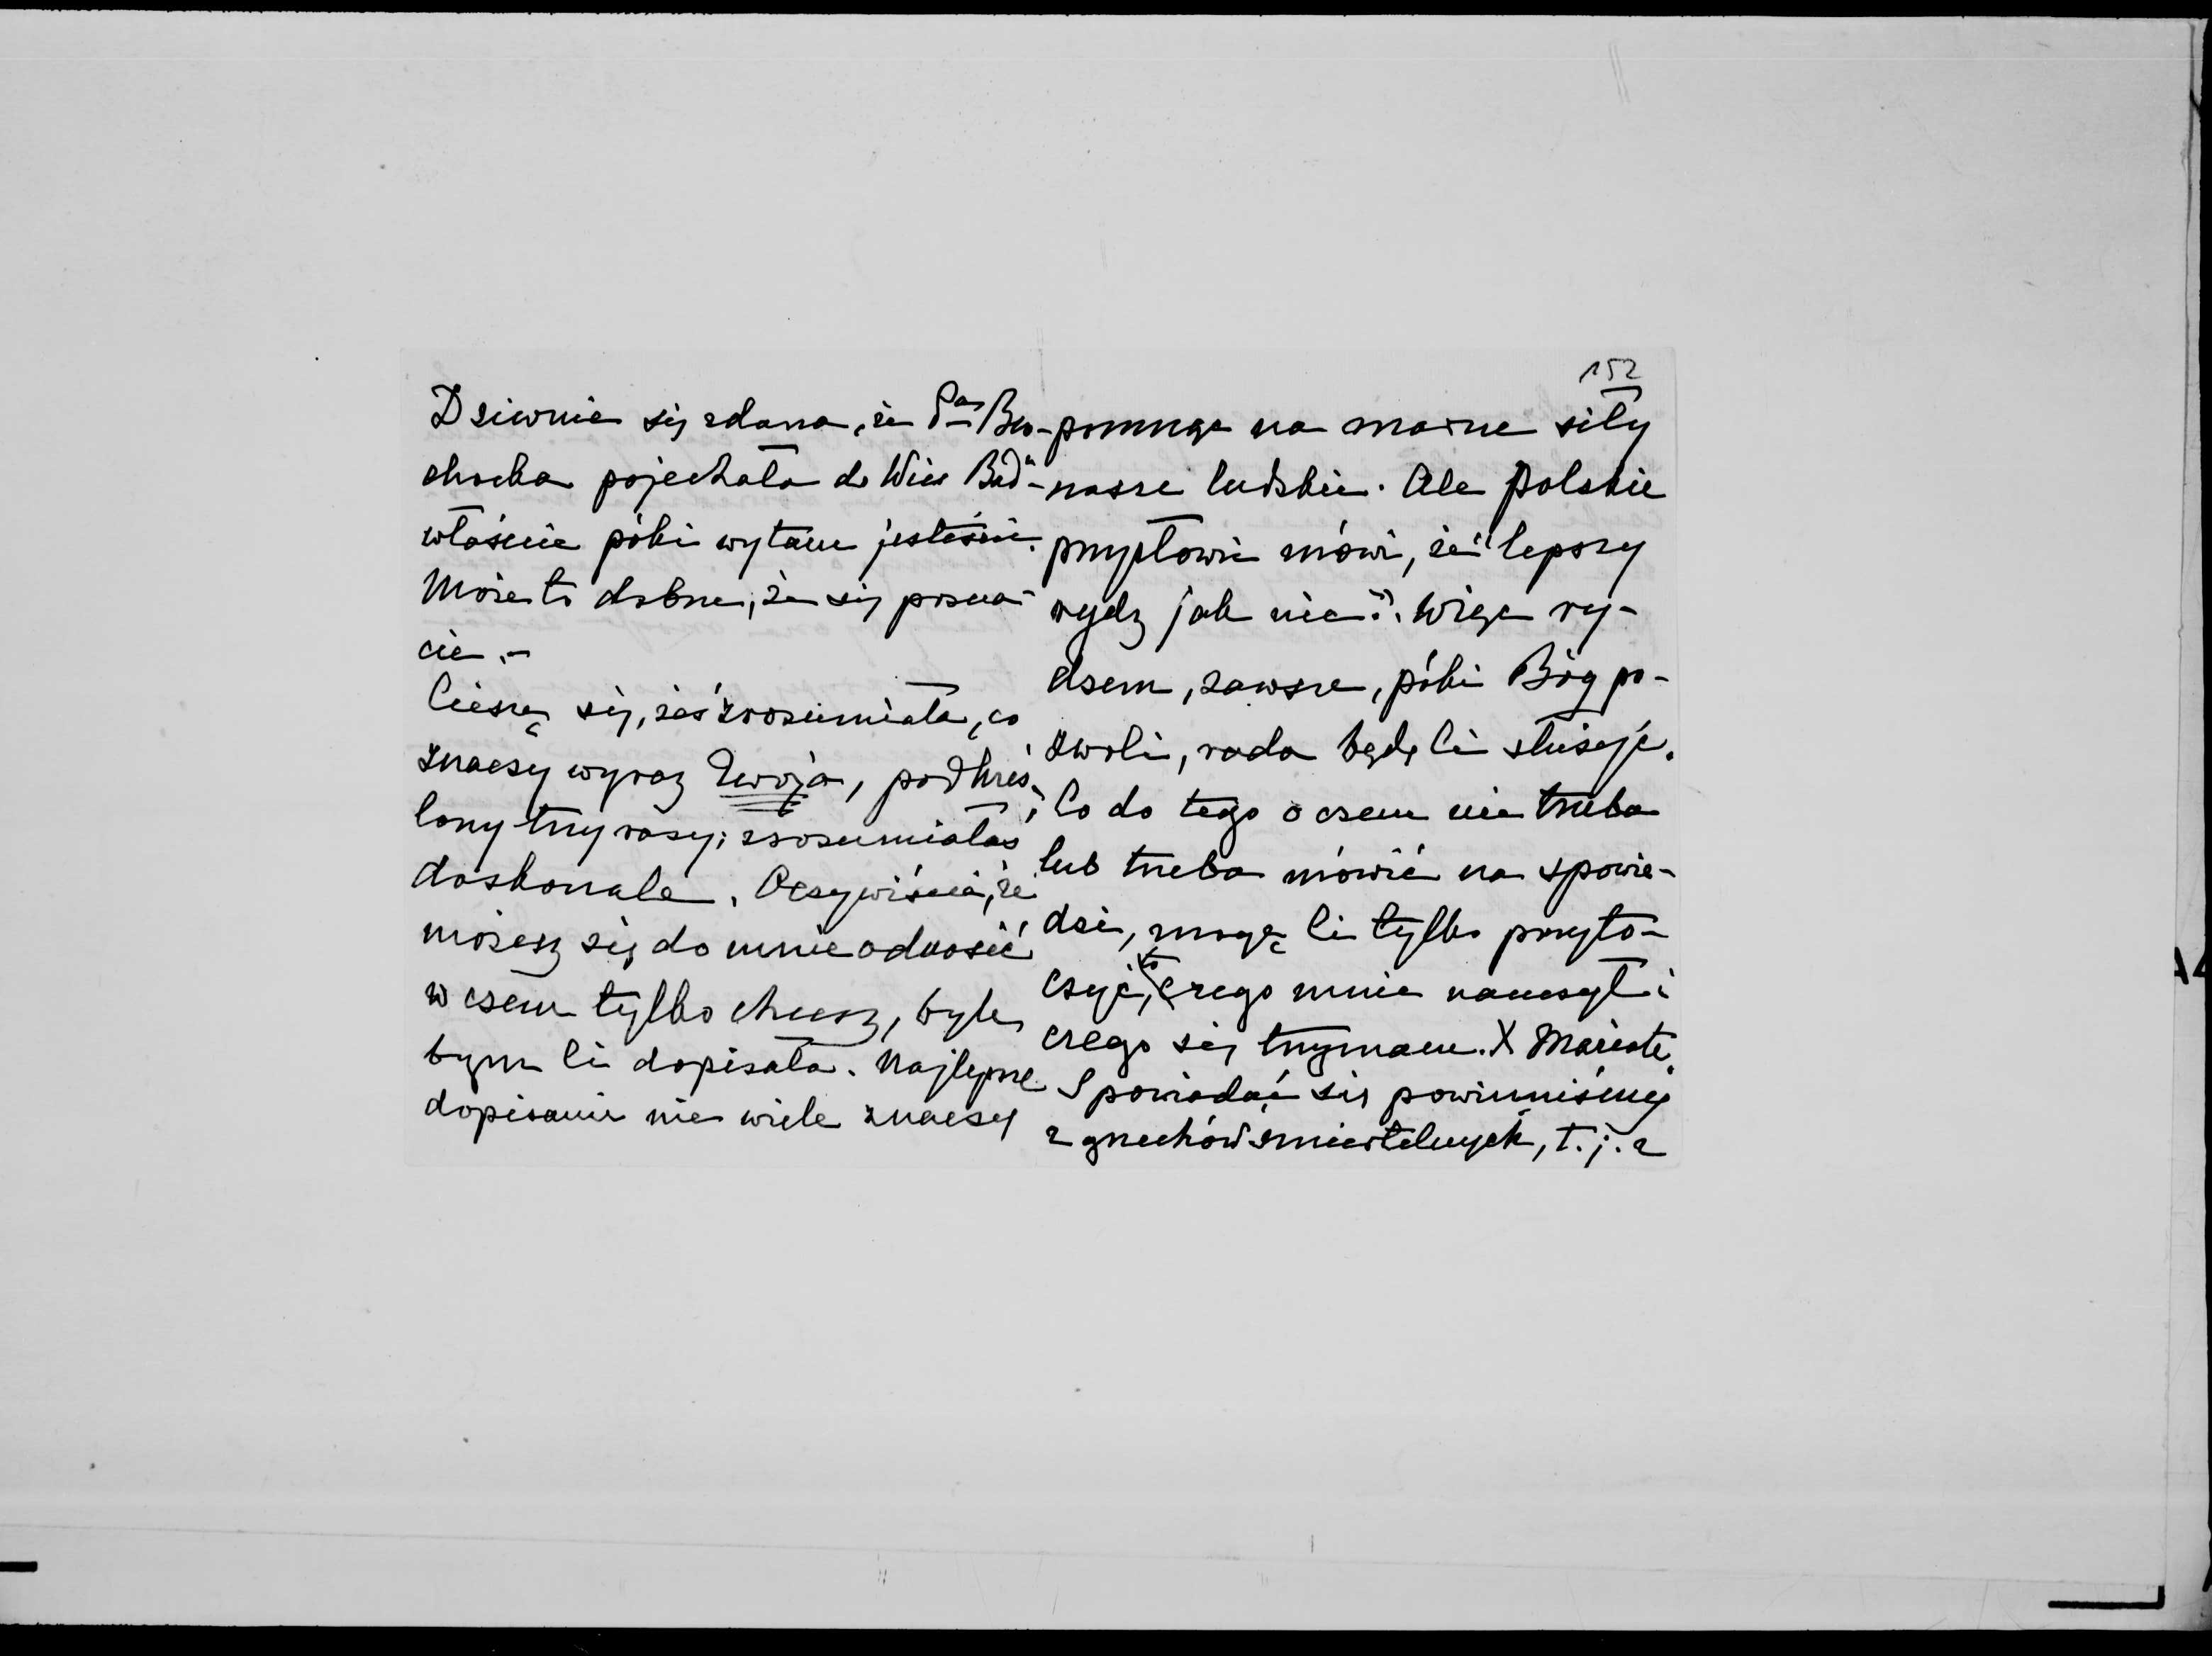 Dziwnie się zdarza, że Pa Bro-
chocka pojechała do Wies Bad.
właśnie póki wy tam jesteście.
Może to dobrze, że się pozna-
cie. -
Cieszę się, żeś zrozumiała, co
znaczy wyraz Twoja, podkreś-
lony trzy razy; zrozumiałaś
doskonale. Oczywiście, że
możesz się do mnie odnosić
w czem tylko chcesz, byle
bym Ci dopisała. Najlepsze
dopisanie nie wiele znaczy
152
pomnąc na marne siły
nasze ludzkie. Ale polskie
przysłowie mówi, że "lepszy
rydz jak nic". Więc ry-
dzem, zawsze, póki Bóg po-
zwoli, rada będę Ci służyć.
Co do tego o czem nie trzeba
lub trzeba mówić na spowie-
dzi, mogę Ci tylko przyto-
czyć, to czego mnie nauczył i
czego się trzymam. X
Spowiadać się powinniśmy
z grzechów śmiertelnych, t. j. z